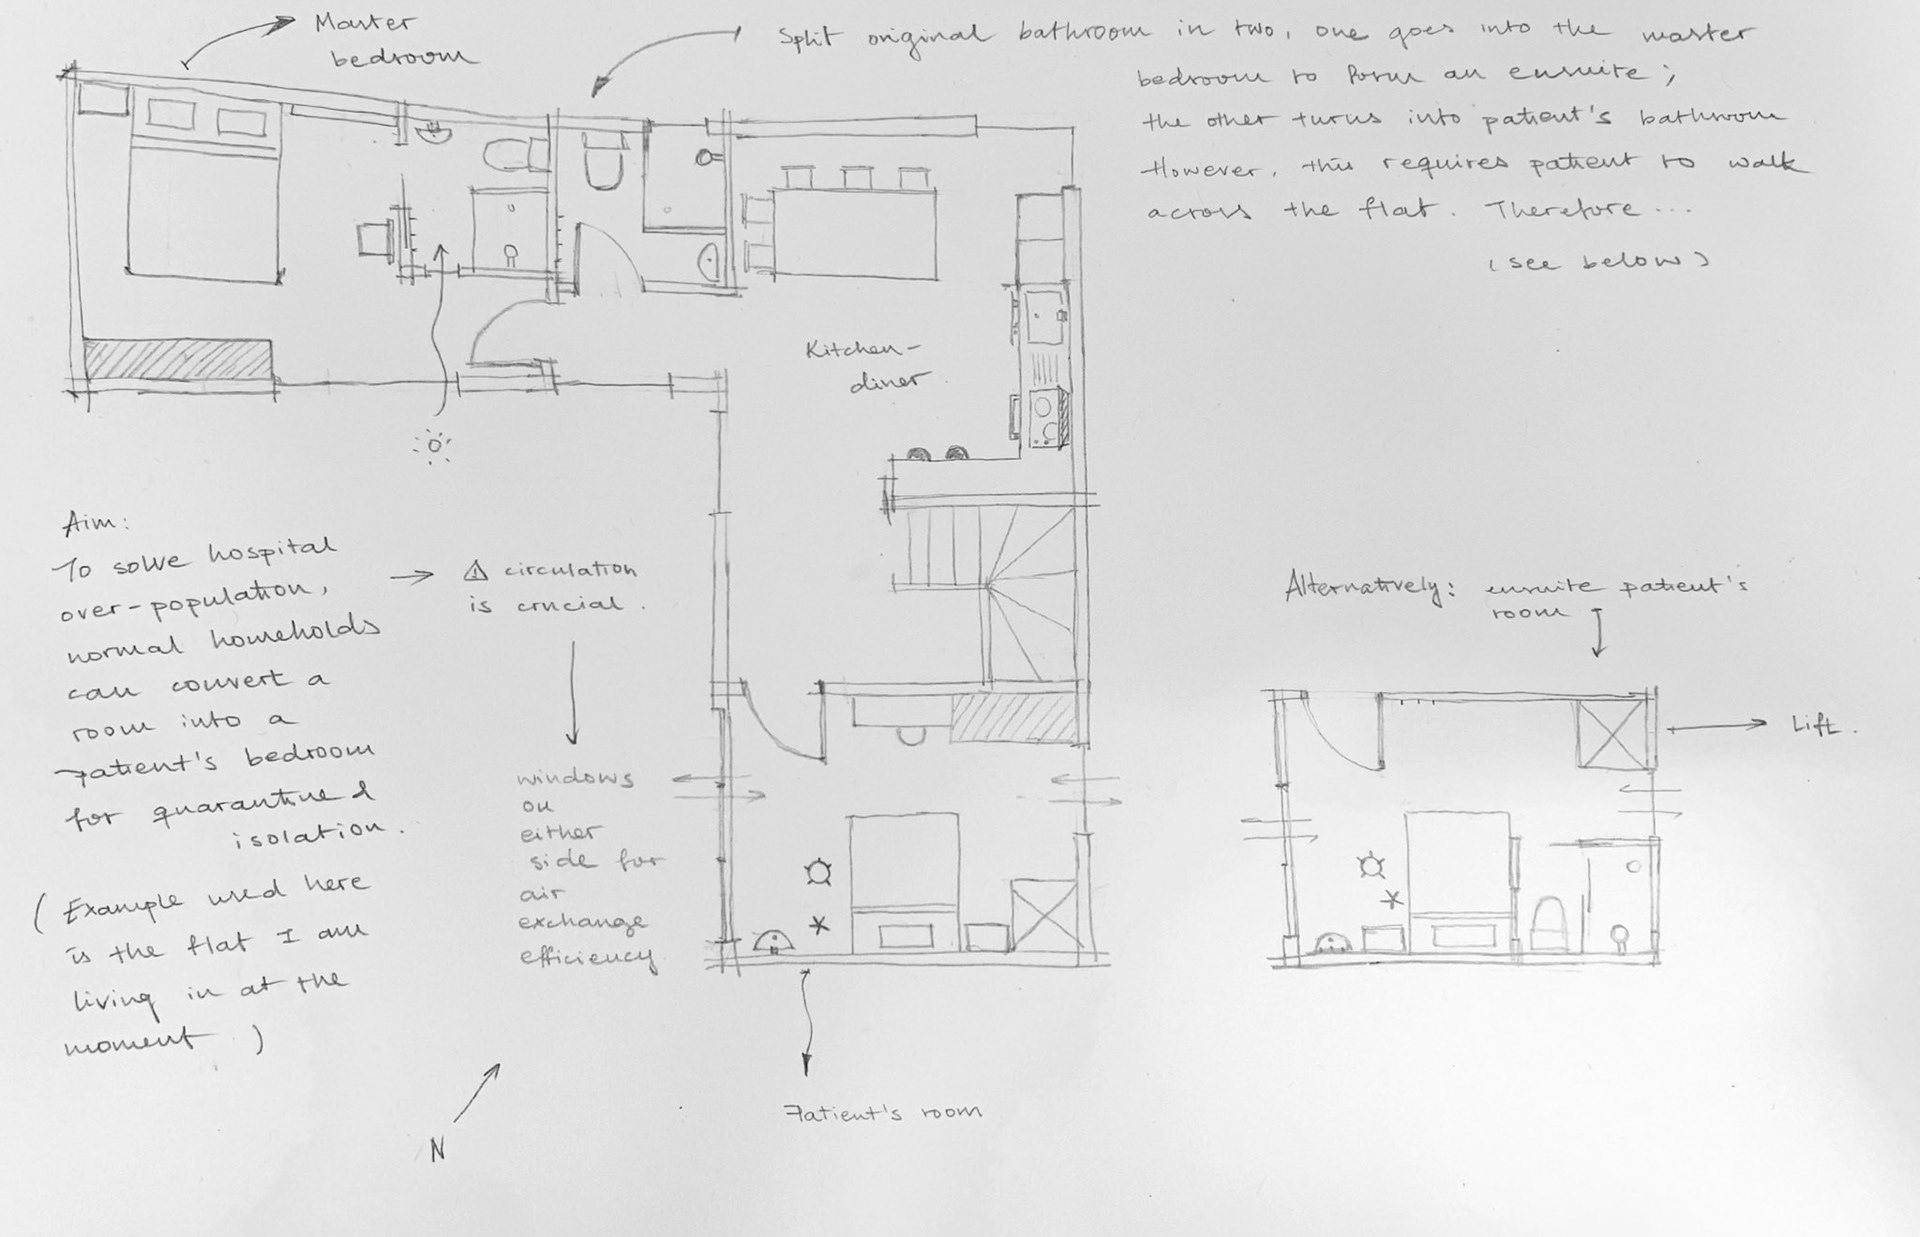 Master
bedroom
Split original bathroom in two, one goes into the master
bedroom to form an ensuite;
the other turns into patient's bathroom
However, this requires patient to walk
across the flat. Therefore...
(see below)
Kitchen-
diner
Aim:
To solve hospital
over-population,
normal households
can convert a
room into a
patient's bedroom
for quarantine &
isolation.
(Example used here
is the flat I am
living in at the
moment )
! circulation
is crucial.
windows
on
either
side for
air
exchange
efficiency.
Alternatively: ensuite patient's
room
Lift.
Patient's room
N